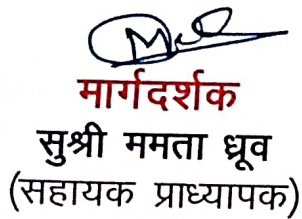 मार्गदर्शक
सुश्री ममता ध्रूव
(सहायक प्राध्यापक)